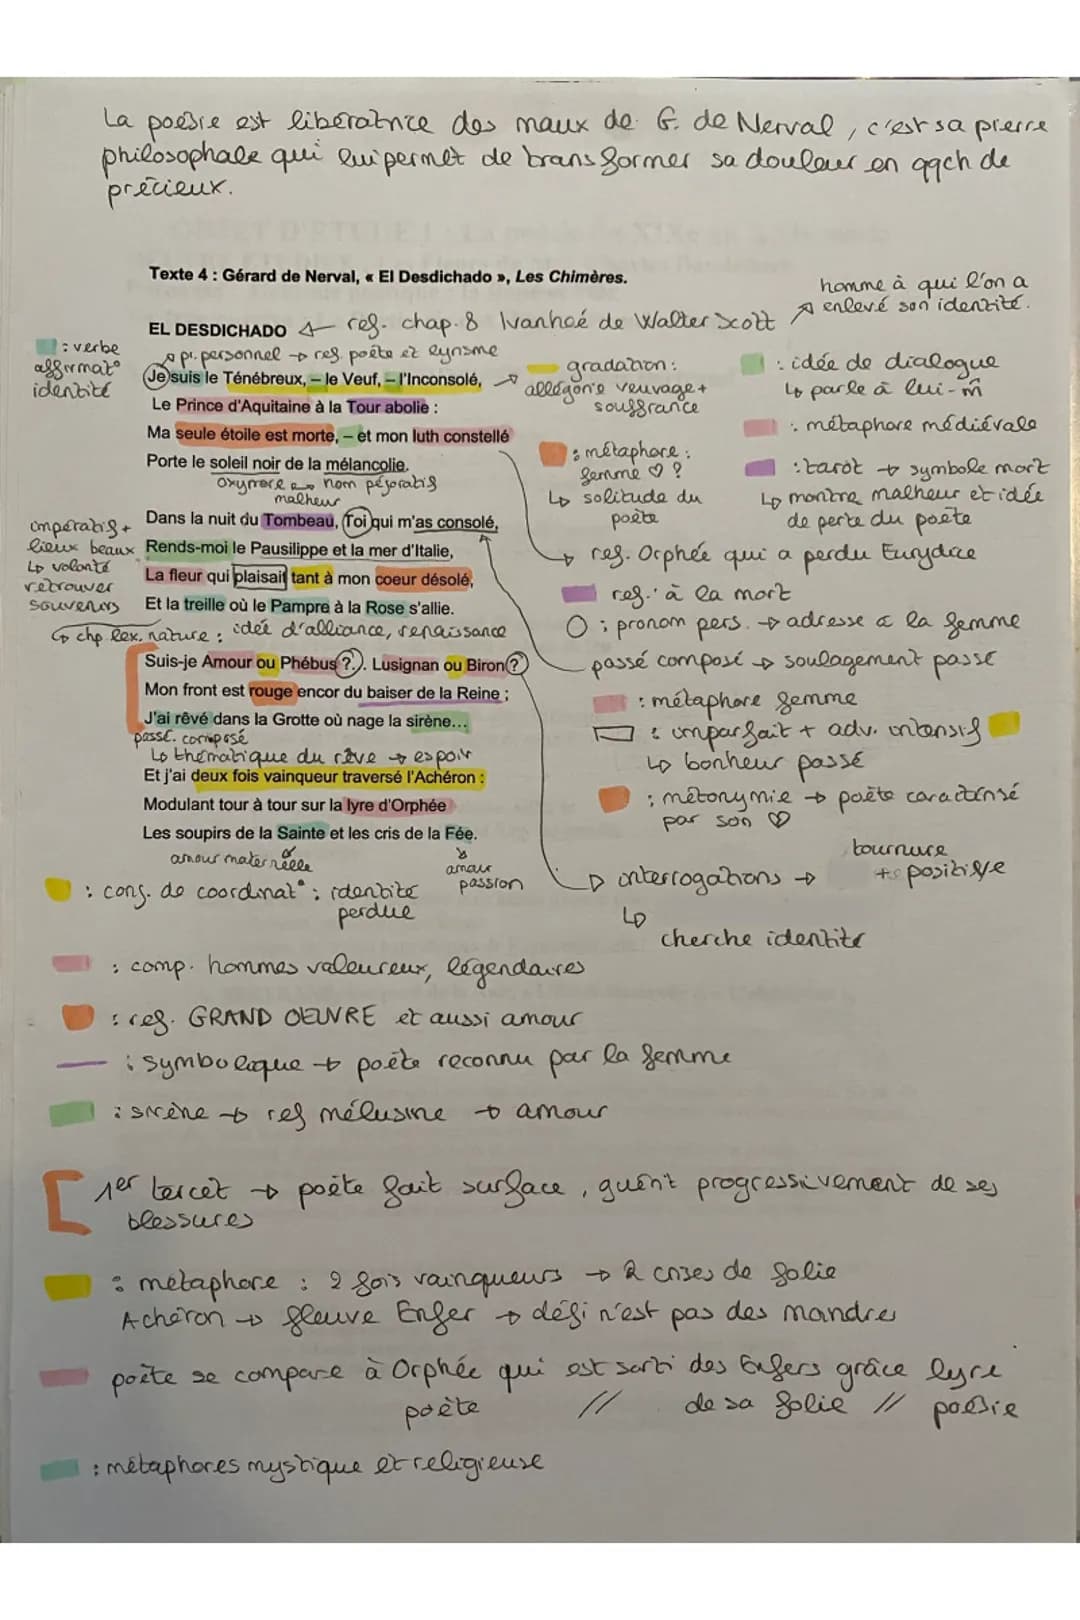 La poésie est libératrice des maux de G. de Nerval, c'est sa pierre
philosophale qui lui permet de transformer sa douleur en qqch de
précieux.
Texte 4 : Gérard de Nerval, « El Desdichado », Les Chimères.
homme à qui l'on a
enlevé son identité.
EL DESDICHADO ← ref. chap. 8 Ivanhoé de Walter Scott
: verbe
affirmat°
identité
pr. personnel → ref. poète et lyrisme
Je suis le Ténébreux, – le Veuf, – l'Inconsolé,
Le Prince d'Aquitaine à la Tour abolie :
Ma seule étoile est morte, – et mon luth constellé
Porte le soleil noir de la mélancolie.
oxymore → nom péjoratif
malheur
gradation :
allégorie veuvage +
souffrance
: idée de dialogue
↳ parle à lui-m̂
: métaphore médiévale
: métaphore :
femme ♡ ?
↳ solitude du
poète
: tarot → symbole mort
↳ montre malheur et idée
de perte du poète
→ ref. Orphée qui a perdu Eurydice
impératif +
lieux beaux
↳ volonté
retrouver
souvenirs
Dans la nuit du Tombeau, Toi qui m'as consolé,
Rends-moi le Pausilippe et la mer d'Italie,
La fleur qui plaisait tant à mon coeur désolé,
Et la treille où le Pampre à la Rose s'allie.
↳ chp lex. nature : idée d'alliance, renaissance
ref. à la mort
: pronom pers. → adresse à la femme
passé composé → soulagement passé
: métaphore femme
: imparfait + adv. intensif
↳ bonheur passé
: métonymie → poète caractérisé
par son ♡
Suis-je Amour ou Phébus ?.. Lusignan ou Biron ?
Mon front est rouge encor du baiser de la Reine ;
J'ai rêvé dans la Grotte où nage la sirène...
passé. composé
↳ thématique du rêve → espoir
Et j'ai deux fois vainqueur traversé l'Achéron :
Modulant tour à tour sur la lyre d'Orphée
Les soupirs de la Sainte et les cris de la Fée.
amour maternelle
amour
passion
→ interrogations →
tournure
+ positive
↳
cherche identité
: conj. de coordinat° : identité
perdue
: comp. hommes valeureux, légendaires
: ref. GRAND OEUVRE et aussi amour
: symbolique → poète reconnu par la femme
: sirène → ref mélusine → amour
1er tercet → poète fait surface, guérit progressivement de ses
blessures
: métaphore : 2 fois vainqueurs → 2 crises de folie
Achéron → fleuve Enfer → défi n'est pas des moindres
poète se compare à Orphée qui est sorti des Enfers grâce lyre
poète // de sa folie // poésie
: métaphores mystique et religieuse